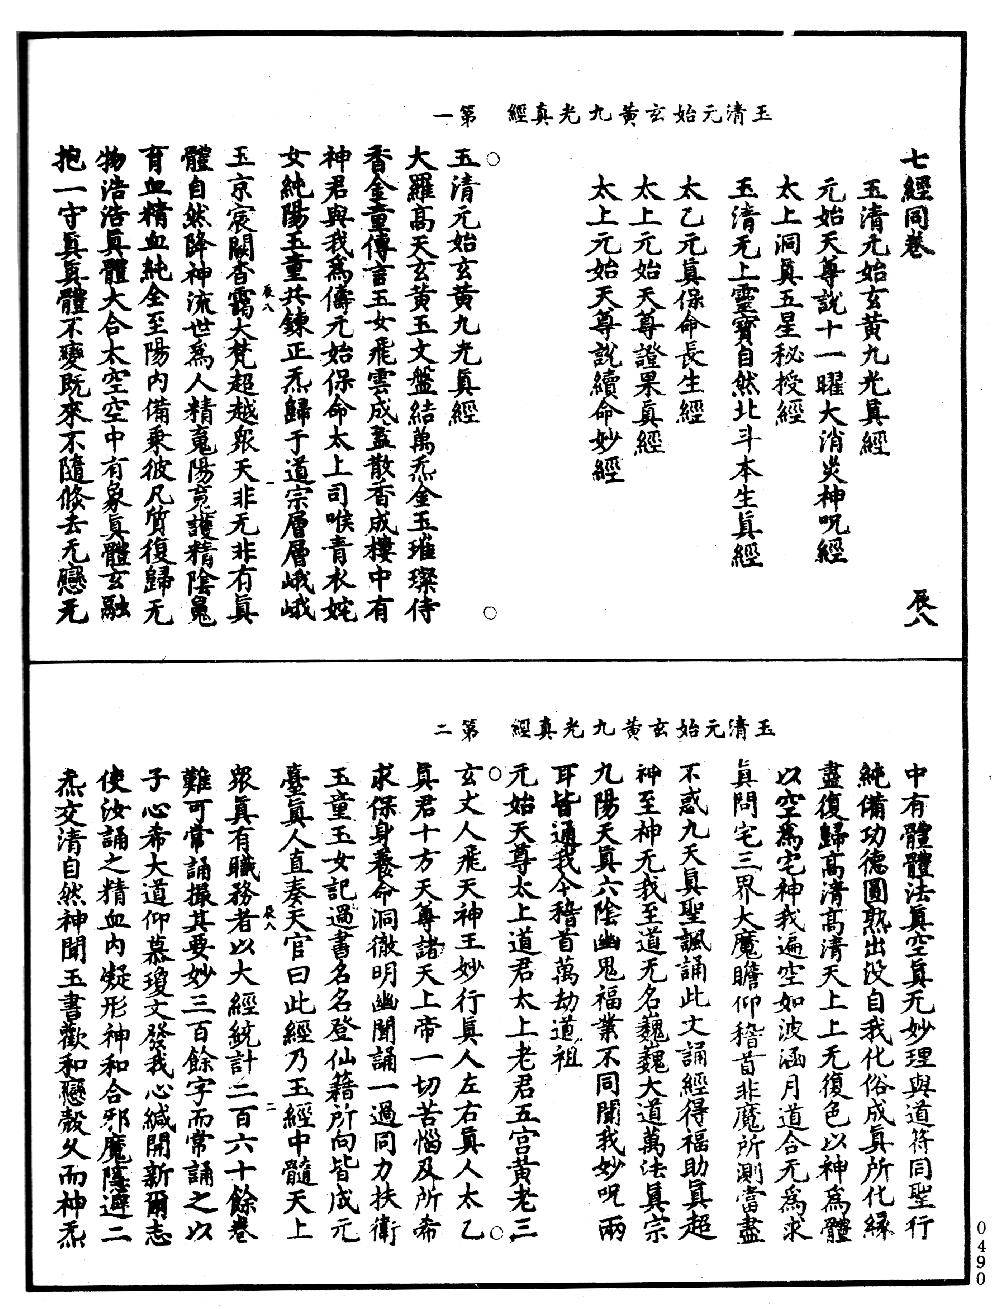 玉清元始玄黃九光真經　第一
七經同卷　辰八
玉清元始玄黃九光真經
元始天尊說十一曜大消災神呪經
太上洞真五星秘授經
玉清无上靈寶自然北斗本生真經
太乙元真保命長生經
太上元始天尊證果真經
太上元始天尊說續命妙經
玉清元始玄黃九光真經
大羅高天玄黃玉文盤結萬炁金玉璀璨侍
香金童傳言玉女飛雲成蓋散香成樓中有
神君與我為儔元始保命太上司喉青衣姹
女純陽玉童共鍊正炁歸于道宗層層峨峨
辰八　一
玉京宸闕杳靄大梵超越衆天非无非有真
體自然降神流世為人精䰟陽䰟護精陰䰟
育血精血純全至陽內備乘彼凡質復歸无
物浩浩真體大合太空空中有象真體玄融
抱一守真真體不變既來不隨倏去无戀无
玉清元始玄黃九光真經　第二
中有體體法真空真无妙理與道符同聖行
純備功德圓熟出没自我化俗成真所化緣
盡復歸高清高清天上上无復色以神為體
以空為宅神我遍空如波涵月道合无為求
真問宅三界大魔瞻仰稽首非魔所測當盡
不惑九天真聖諷誦此文誦經得福助真超
神至神无我至道无名巍巍大道萬法真宗
九陽天真六陰幽鬼福業不同聞我妙呪兩
耳皆通我今稽首萬劫道祖
元始天尊太上道君太上老君五宮黃老三
玄丈人飛天神王妙行真人左右真人太乙
真君十方天尊諸天上帝一切苦惱及所希
求保身養命洞徹明幽聞誦一過同力扶衛
玉童玉女記過書名名登仙籍所向皆成元
臺真人直奏天官曰此經乃玉經中髓天上
辰八　二
衆真有職務者以大經統計二百六十餘卷
難可常誦撮其要妙三百餘字而常誦之以
子心希大道仰慕瓊文發我心緘開新爾志
使汝誦之精血內凝形神和合邪魔隱避二
炁交清自然神聞玉書歡和戀殼久而神炁
0490